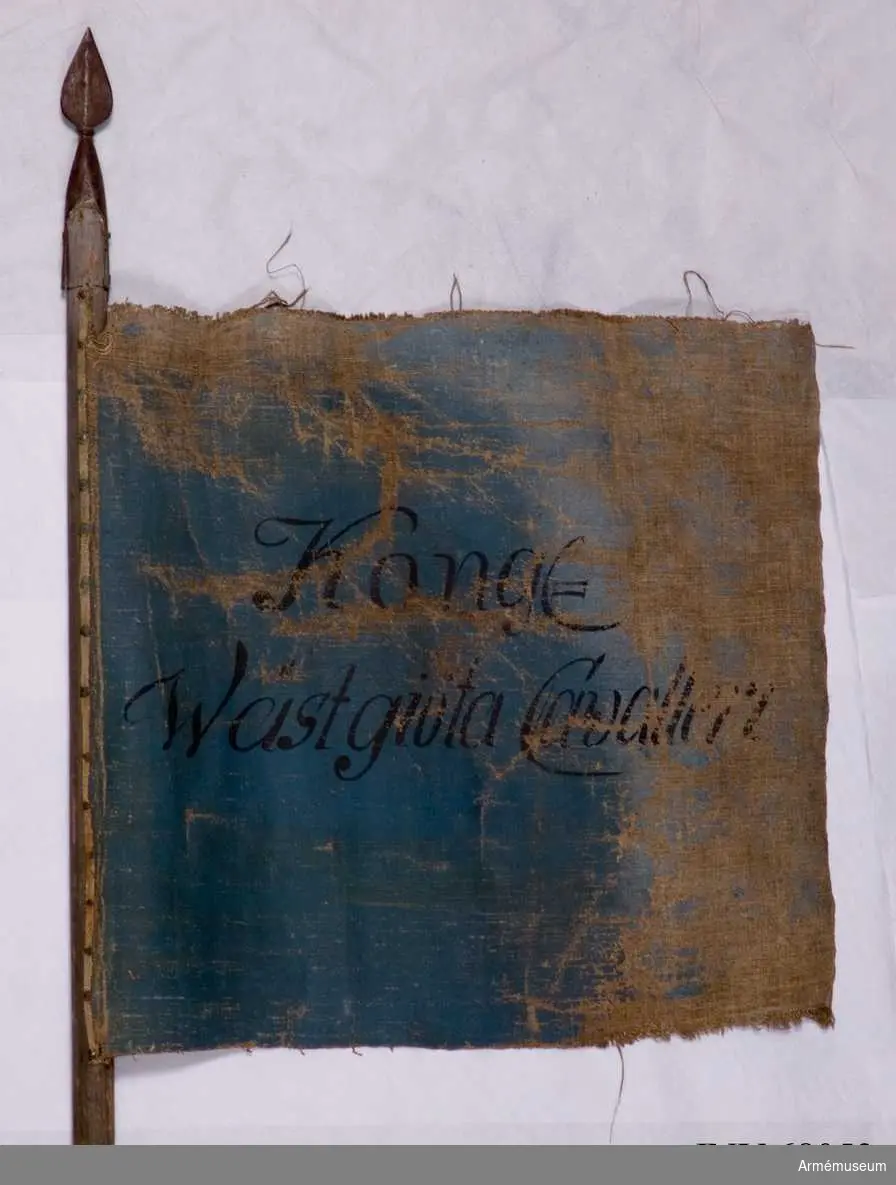 Konge
Wästgiöta Cavalleri
Armémuseum